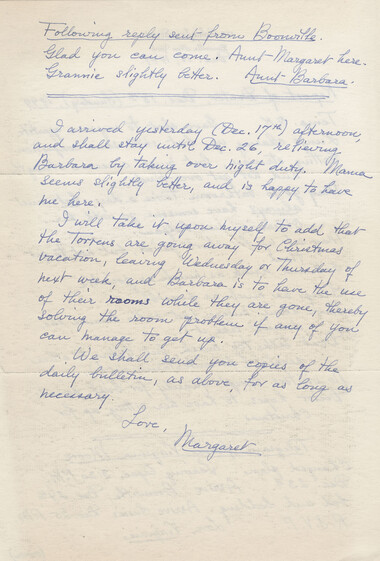 Following reply sent from Boonville.
Glad you can come. Aunt Margaret here.
Grannie slightly better. Aunt Barbara.
I arrived yesterday (Dec. 17th) afternoon,
and shall stay until Dec. 26, relieving
Barbara by taking over night duty. Mama
seems slightly better, and is happy to have
me here.
I will take it upon myself to add that
the Torrens are going away for Christmas
vacation, leaving Wednesday or Thursday of
next week, and Barbara is to have the use
of their rooms while they are gone, thereby
solving the room problem if any of you
can manage to get up.
We shall send you copies of the
daily bulletin, as above, for as long as
necessary.
Love,
Margaret